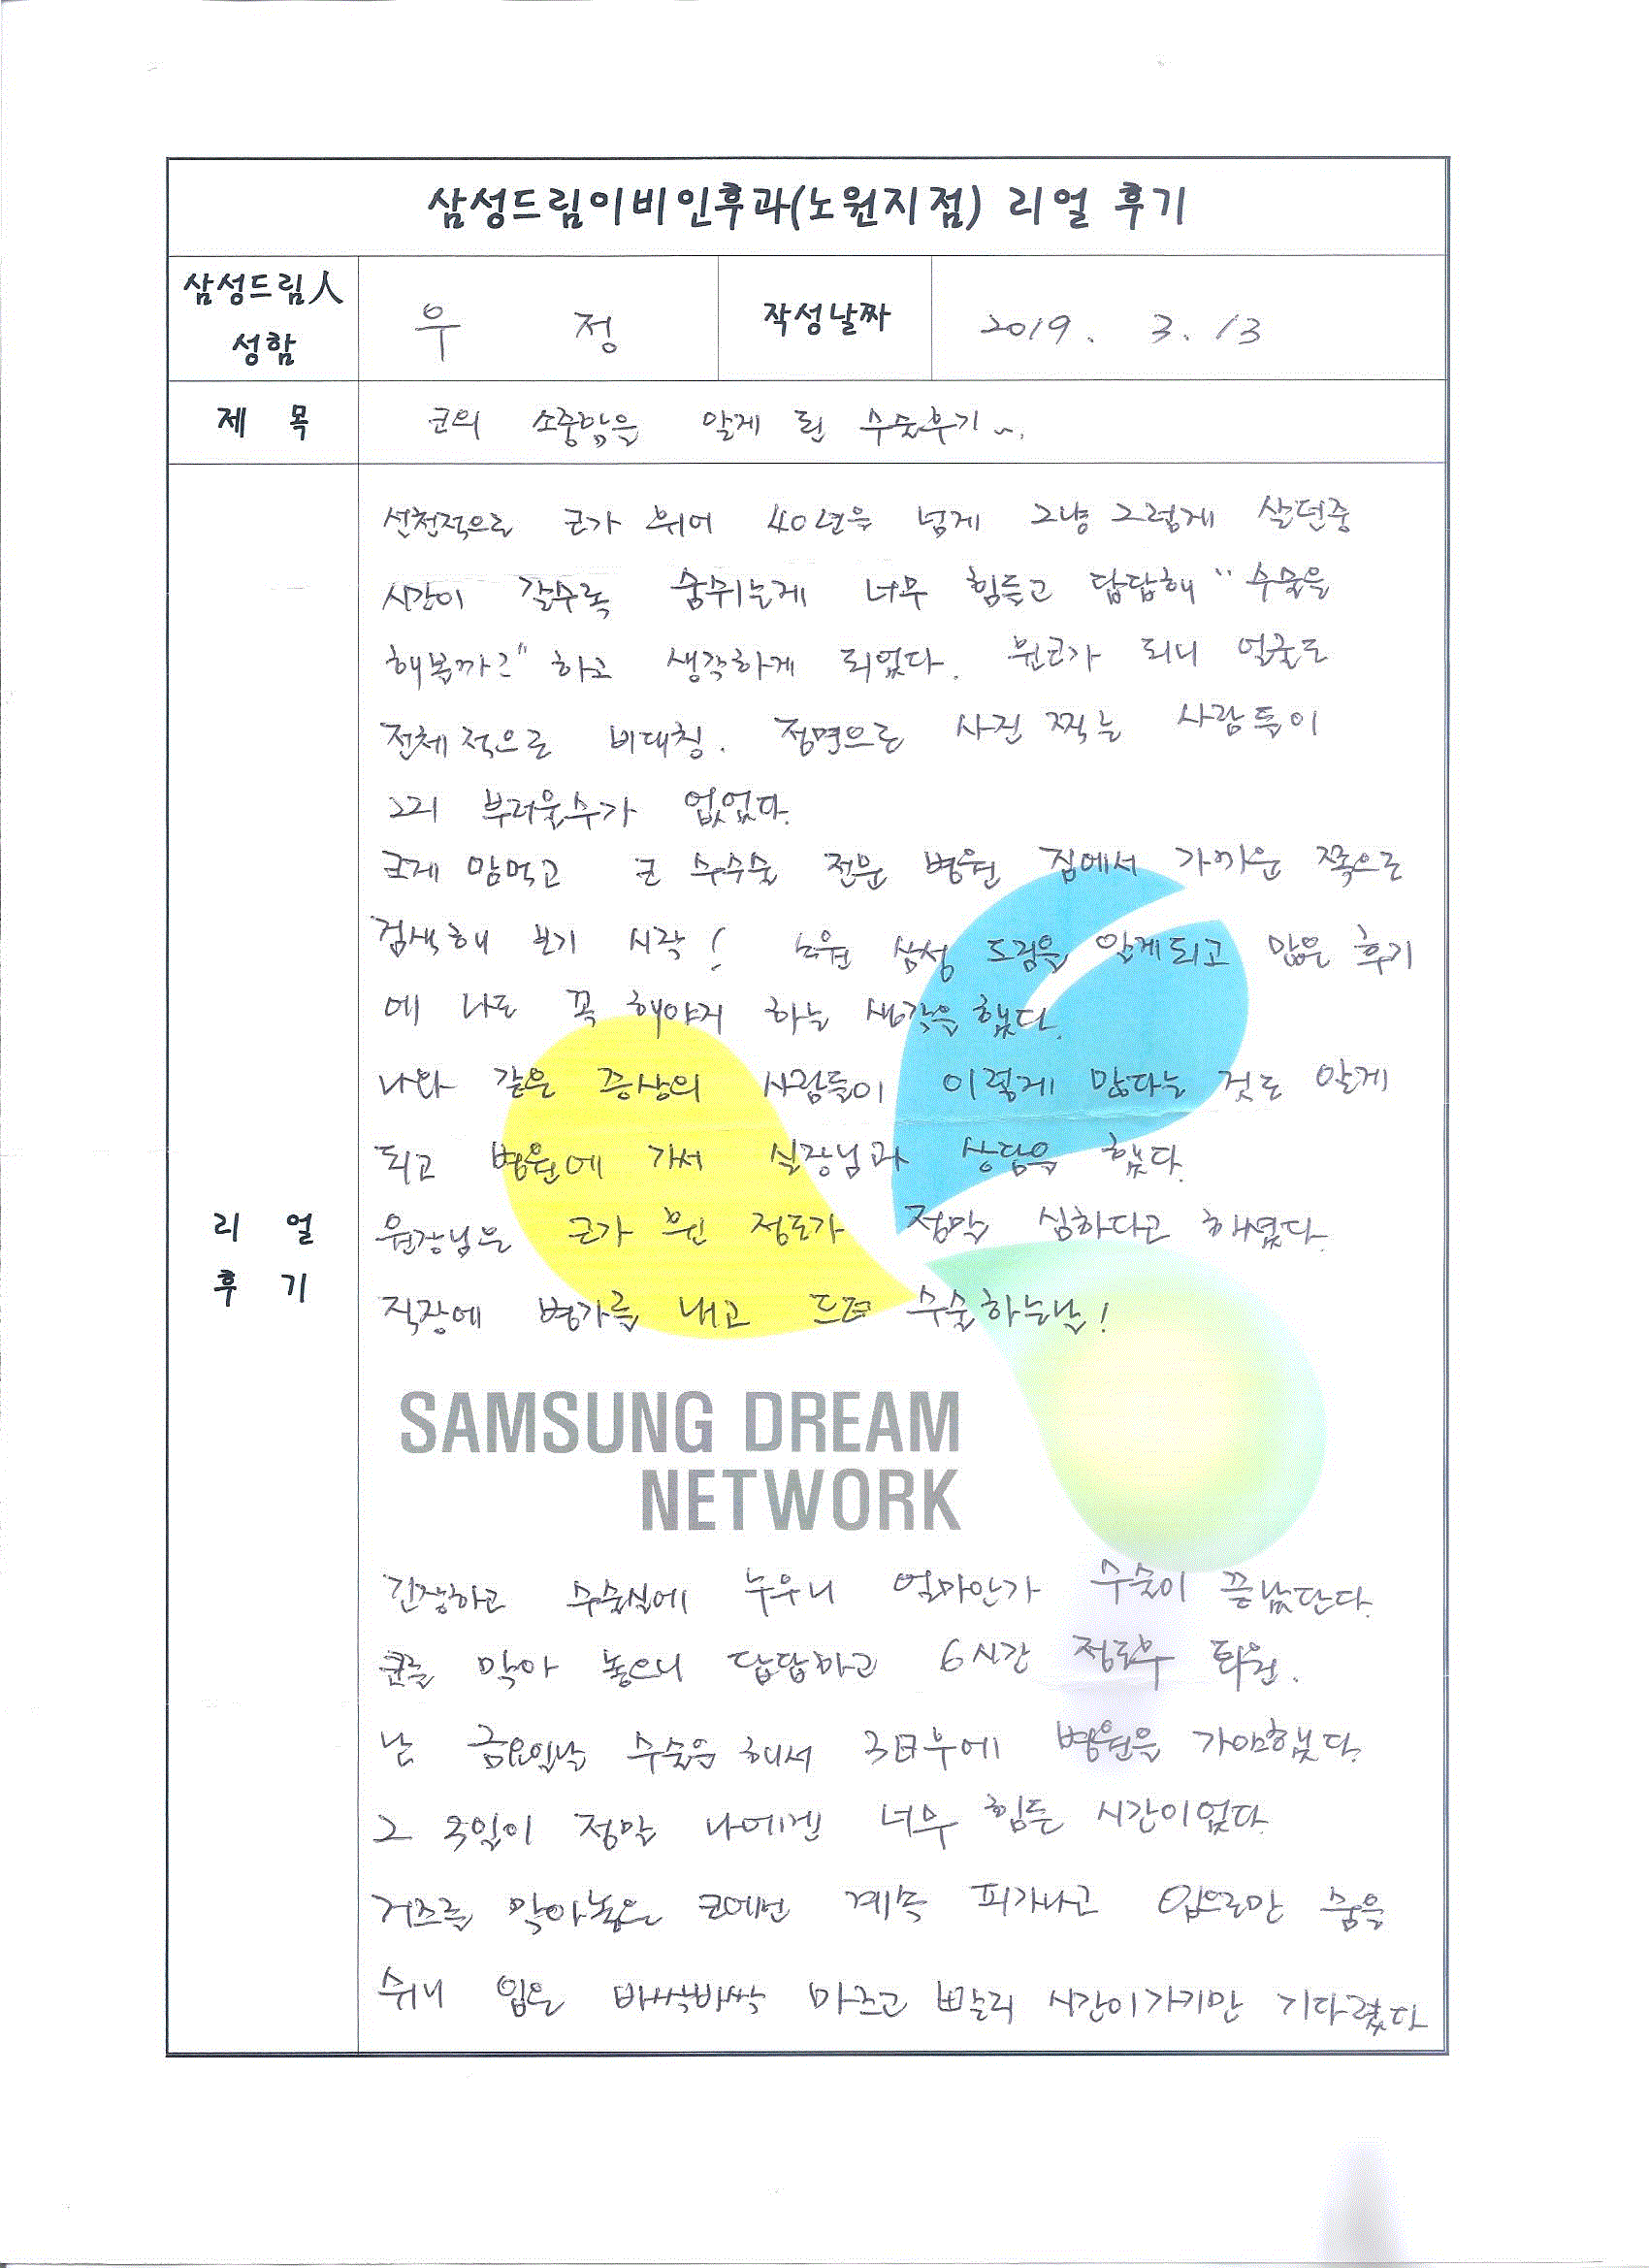 삼성드림이비인후과(노원지점) 리얼 후기
삼성드림人 성함
우 정
작성날짜
2019. 3. 13
제 목
코의 소중함을 알게 된 수술후기~.
리 얼
후 기
선천적으로 코가 휘어 40년을 넘게 그냥 그렇게 살던중
시간이 갈수록 숨쉬는게 너무 힘들고 답답해 "수술을
해볼까?" 하고 생각하게 되었다. 휜코가 되니 얼굴도
전체적으로 비대칭. 정면으로 사진 찍는 사람들이
그리 부러울수가 없었다.
크게 맘먹고 코 수수술 전문 병원 집에서 가까운 쪽으로
검색해 보기 시작! 노원 삼성 드림을 알게되고 많은 후기
에 나도 꼭 해야지 하는 생각을 했다.
나와 같은 증상의 사람들이 이렇게 많다는 것도 알게
되고 병원에 가서 실장님과 상담을 했다.
원장님은 코가 휜 정도가 정말 심하다고 해셨다.
직장에 병가를 내고 드뎌 수술하는날!
SAMSUNG DREAM
NETWORK
긴장하고 수술실에 누우니 얼마안가 수술이 끝났단다.
코를 막아 놓으니 답답하고 6시간 정도후 퇴원.
난 금요일날 수술을 해서 3일후에 병원을 가야했다.
그 3일이 정말 나에겐 너무 힘든 시간이었다.
거즈를 막아놓은 코에선 계속 피가나고 입으로만 숨을
쉬니 입은 바싹바싹 마르고 빨리 시간이가기만 기다렸다